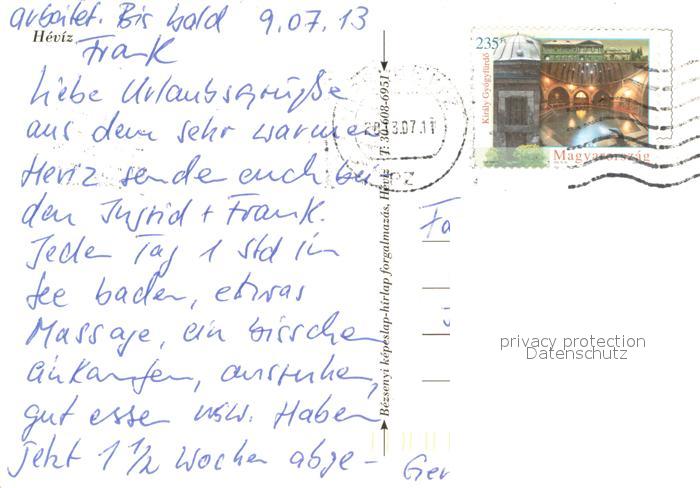 arbeitet. Bis bald 9.07.13
Hévíz
Frank
Liebe Urlaubsgrüße
aus dem sehr warmen
Heviz senden euch bei
den Ingrid + Frank.
Jeden Tag 1 Std im
See baden, etwas
Massage, ein bisschen
einkaufen, ausruhen,
gut essen usw. Haben
jetzt 1 1/2 Wochen abge-
Bézsenyi képeslap-hírlap forgalmazás, Hévíz T: 30-608-6951
235Ft
Király Gyógyfürdő
Magyarország
13.07.11
Fa
Ger
privacy protection
Datenschutz